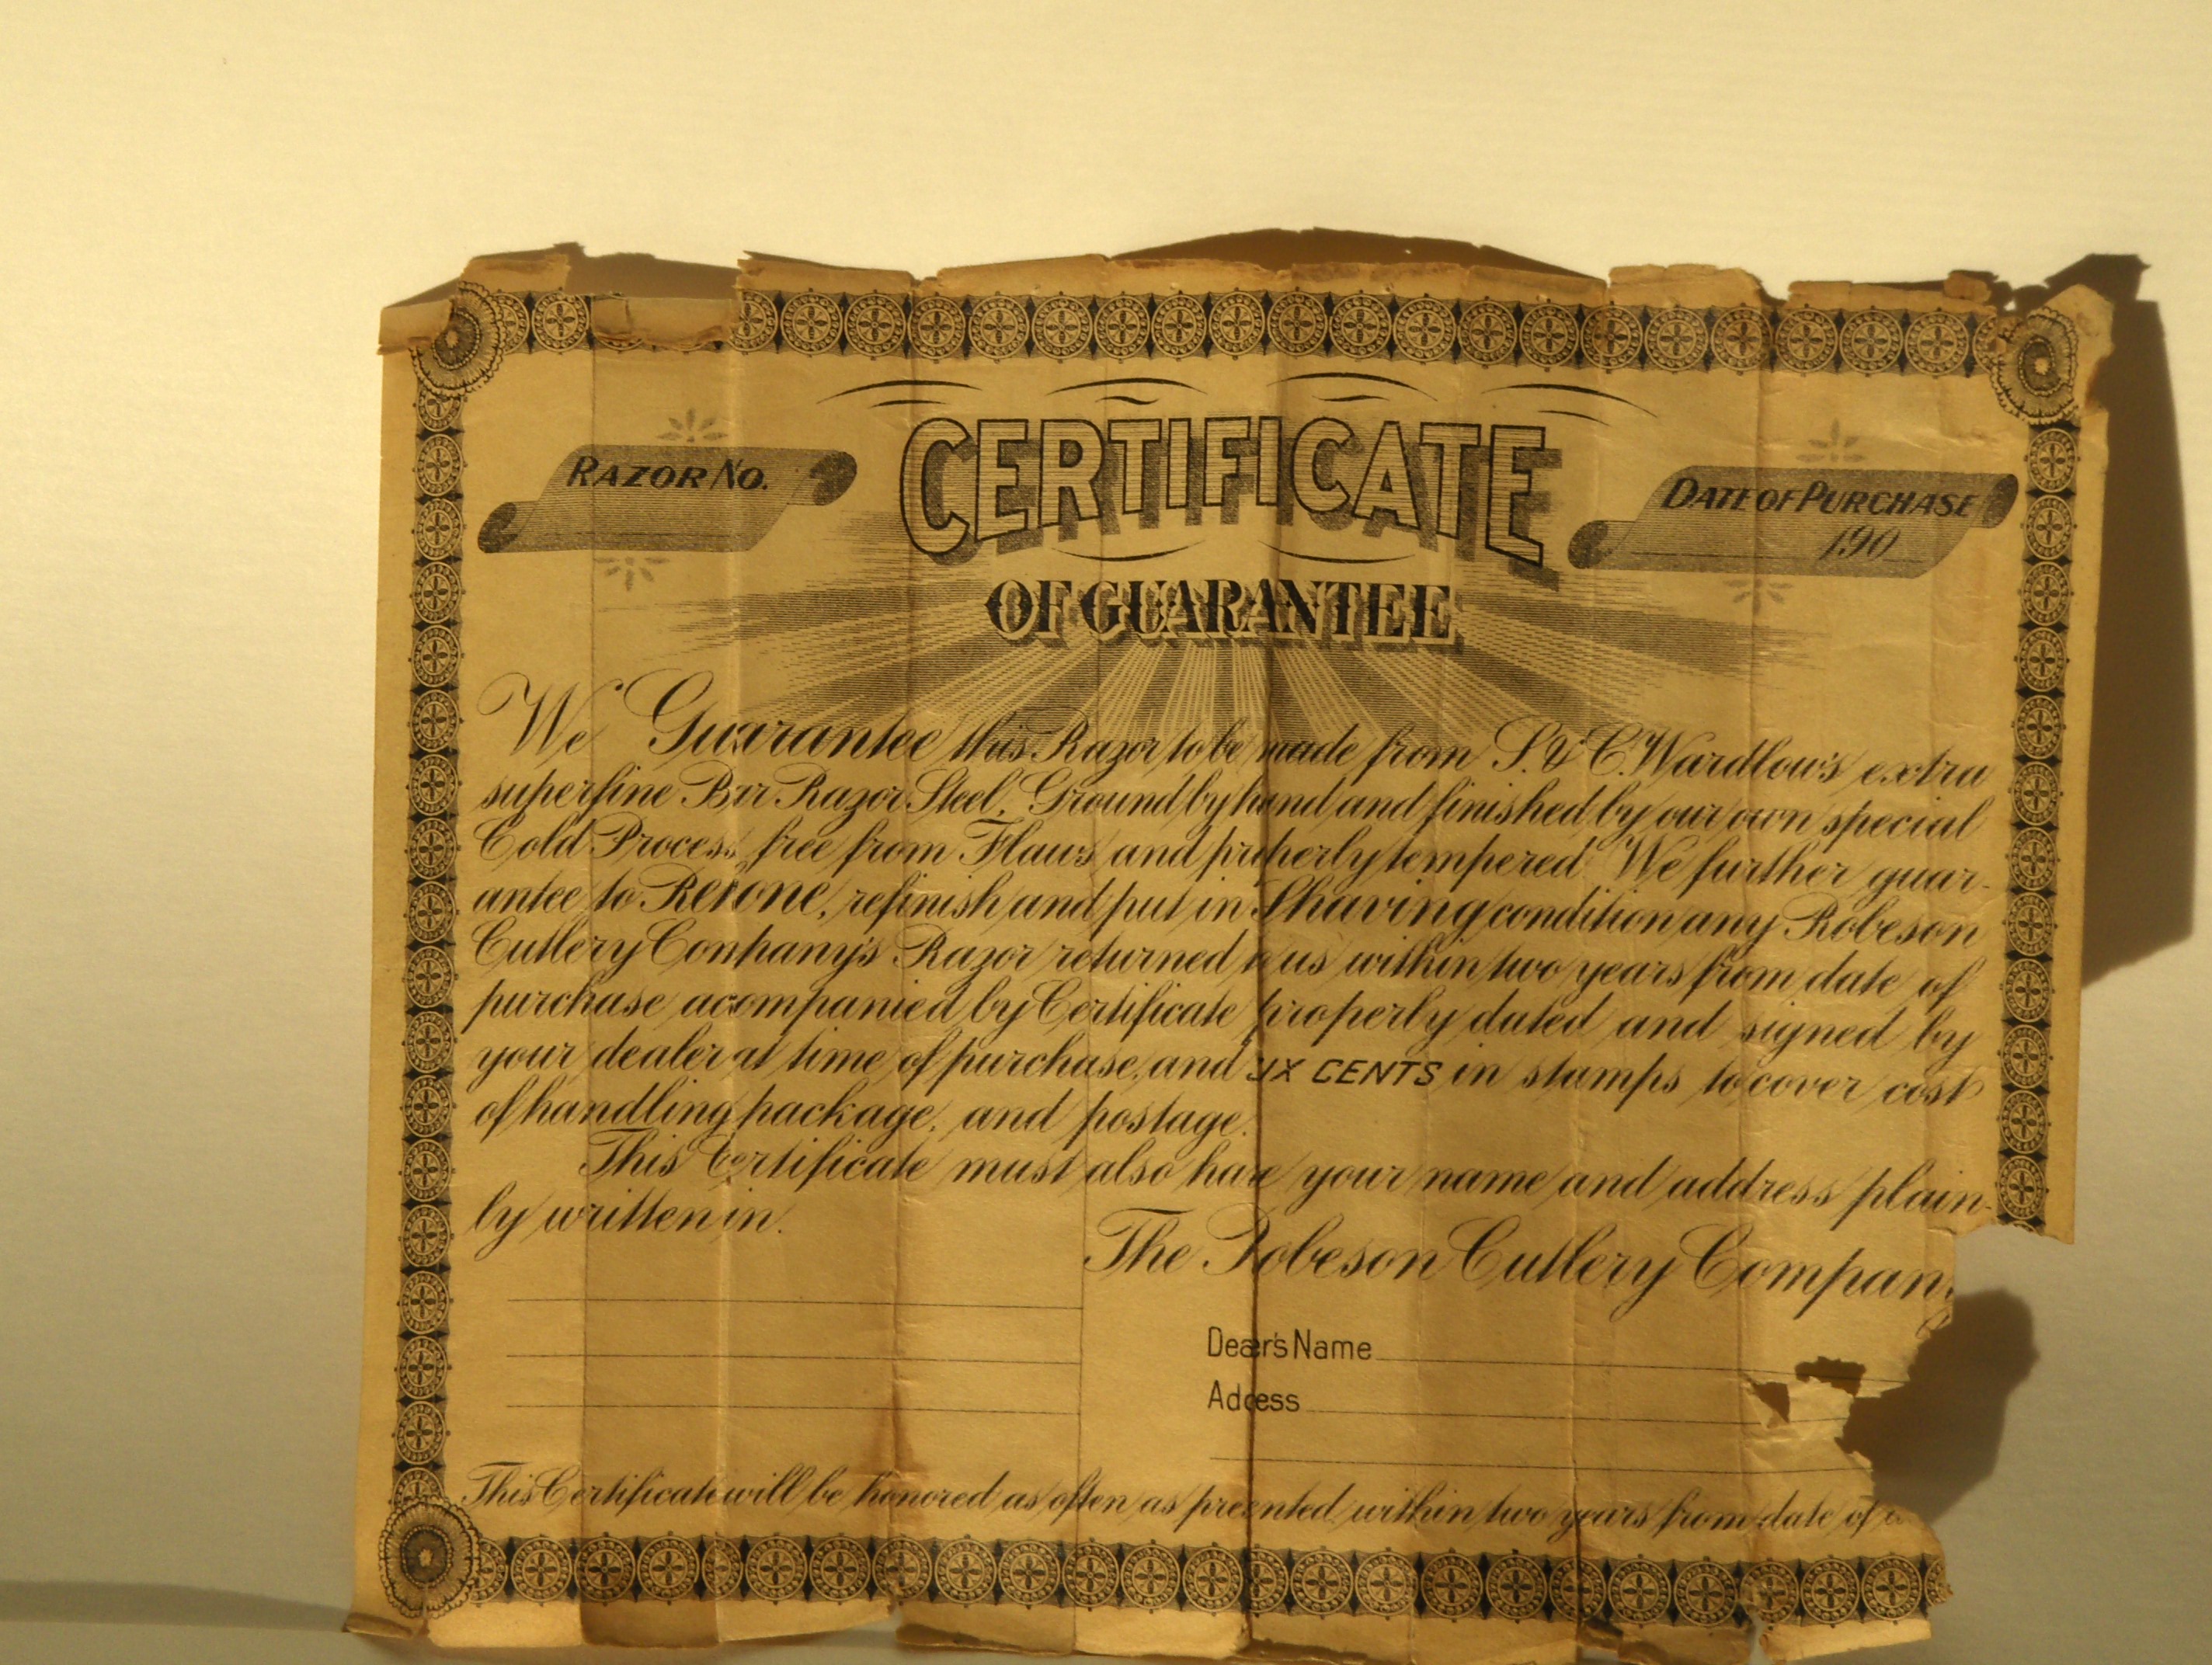 CERTIFICATE
RAZOR NO.
DATE OF PURCHASE
190
OF GUARANTEE
We Guarantee this Razor to be made from S. & C. Wardlow's extra
superfine Bar Razor Steel. Ground by hand and finished by our own special
Cold Process, free from Flaws and properly tempered. We further guar-
antee to Rehone, refinish and put in Shaving condition any Robeson
Cutlery Company's Razor returned to us within two years from date of
purchase acompanied by Certificate properly dated and signed by
your dealer at time of purchase, and SIX CENTS in stamps to cover cost
of handling package, and postage.
This Certificate must also have your name and address plain-
ly written in.
The Robeson Cutlery Company
Dealer's Name
Address
This Certificate will be honored as often as presented within two years from date of